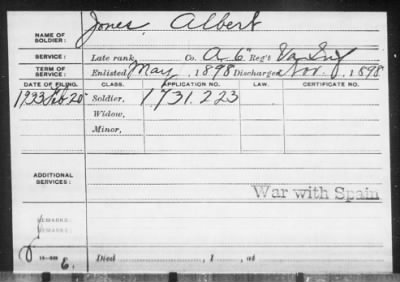 NAME OF SOLDIER: Jones, Albert
SERVICE: Late rank, Co. A. 6" Reg't Va. Inf
TERM OF SERVICE: Enlisted May, 1898 Discharged Nov., 1898
DATE OF FILING. CLASS. APPLICATION NO. LAW. CERTIFICATE NO.
1933 Feb. 20 Soldier, 1,731.223
Widow,
Minor,
ADDITIONAL SERVICES:
War with Spain
REMARKS:
REMARKS:
6.
Died , 1 , at